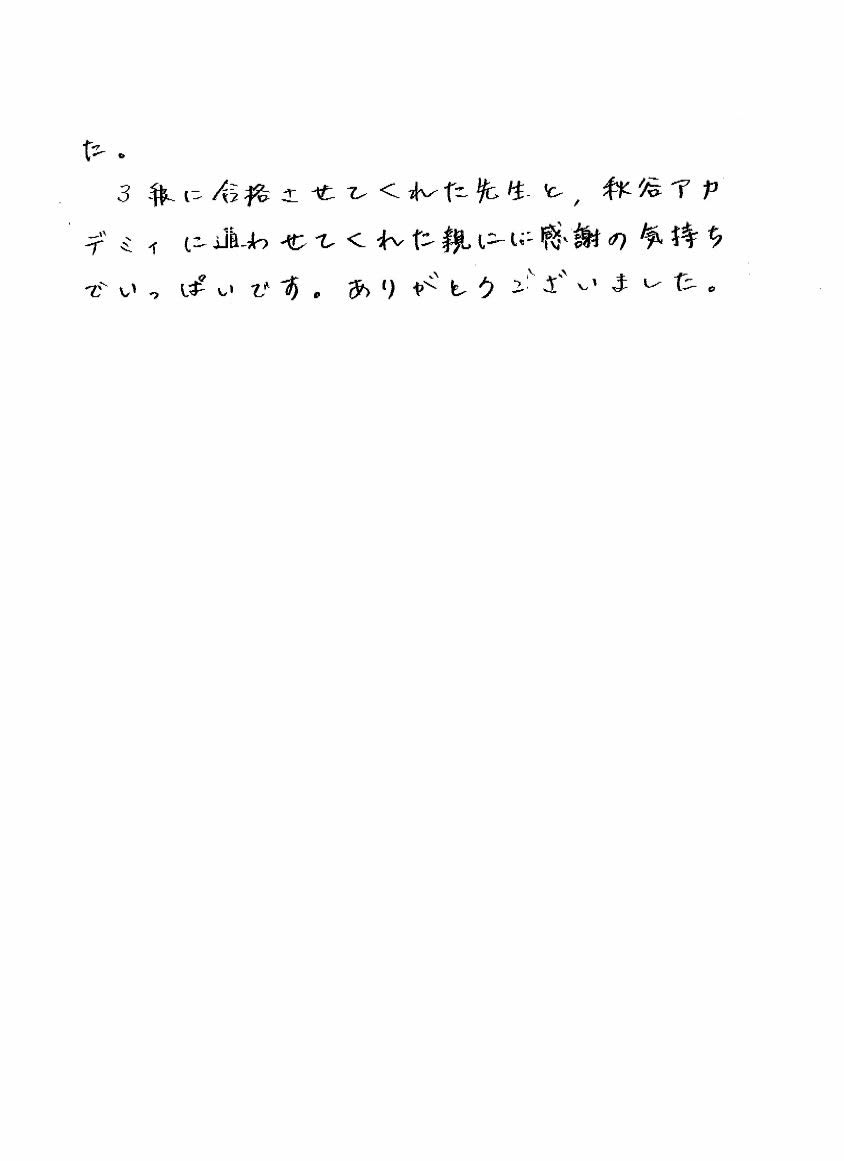 た。
3級に合格させてくれた先生と,秋谷アカ
デミィに通わせてくれた親には感謝の気持ち
でいっぱいです。ありがとうございました。